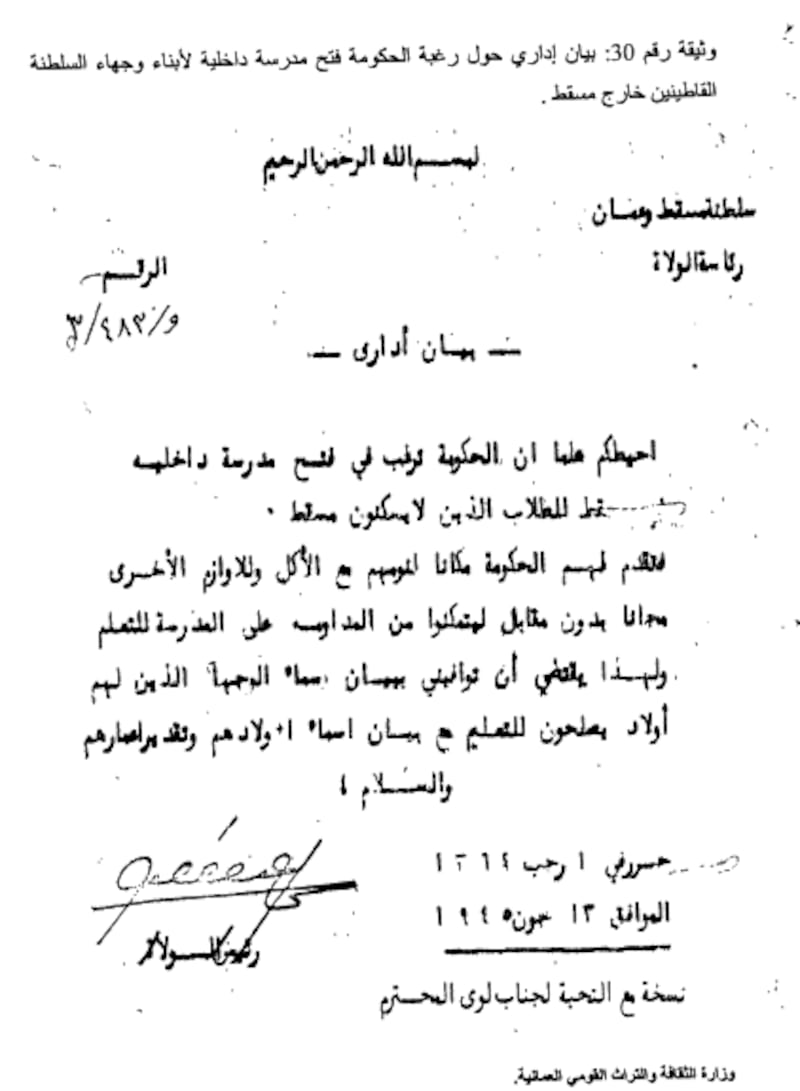 وثيقة رقم 30: بيان إداري حول رغبة الحكومة فتح مدرسة داخلية لأبناء وجهاء السلطنة
القاطنين خارج مسقط .
بسم الله الرحمن الرحيم
سلطنة مسقط وعمان
رئاسة الولاة
الرقم
و/٤٨٣/٣
— بيان أدارى —
احيطكم علما ان الحكومة ترغب في فتح مدرسة داخليه
للطلاب الذين لا يسكنون مسقط ٠
فتقدم لهم الحكومة مكانا لنومهم مع الأكل وللاوازم الأخرى
مجانا بدون مقابل ليتمكنوا من المداومه على المدرسة للتعلم
ولهذا يقتضي أن توافيني ببيان اسماء الوجهاء الذين لهم
أولاد يصلحون للتعليم مع بيان اسماء اولادهم وتقدير اعمارهم
والسلام
حرر في ١ رجب ١٣٦٤
الموافق ١٣ جون ١٩٤٥
رئيس الولاة
نسخة مع التحية لجناب لوى المحترم
وزارة الثقافة والتراث القومي العمانية.